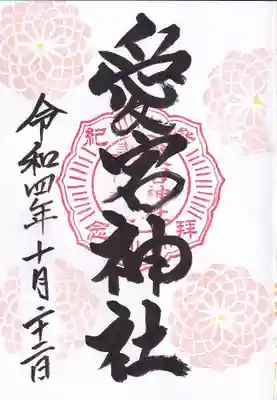 愛宕神社
拝
紀念
令和四年十月二十二日